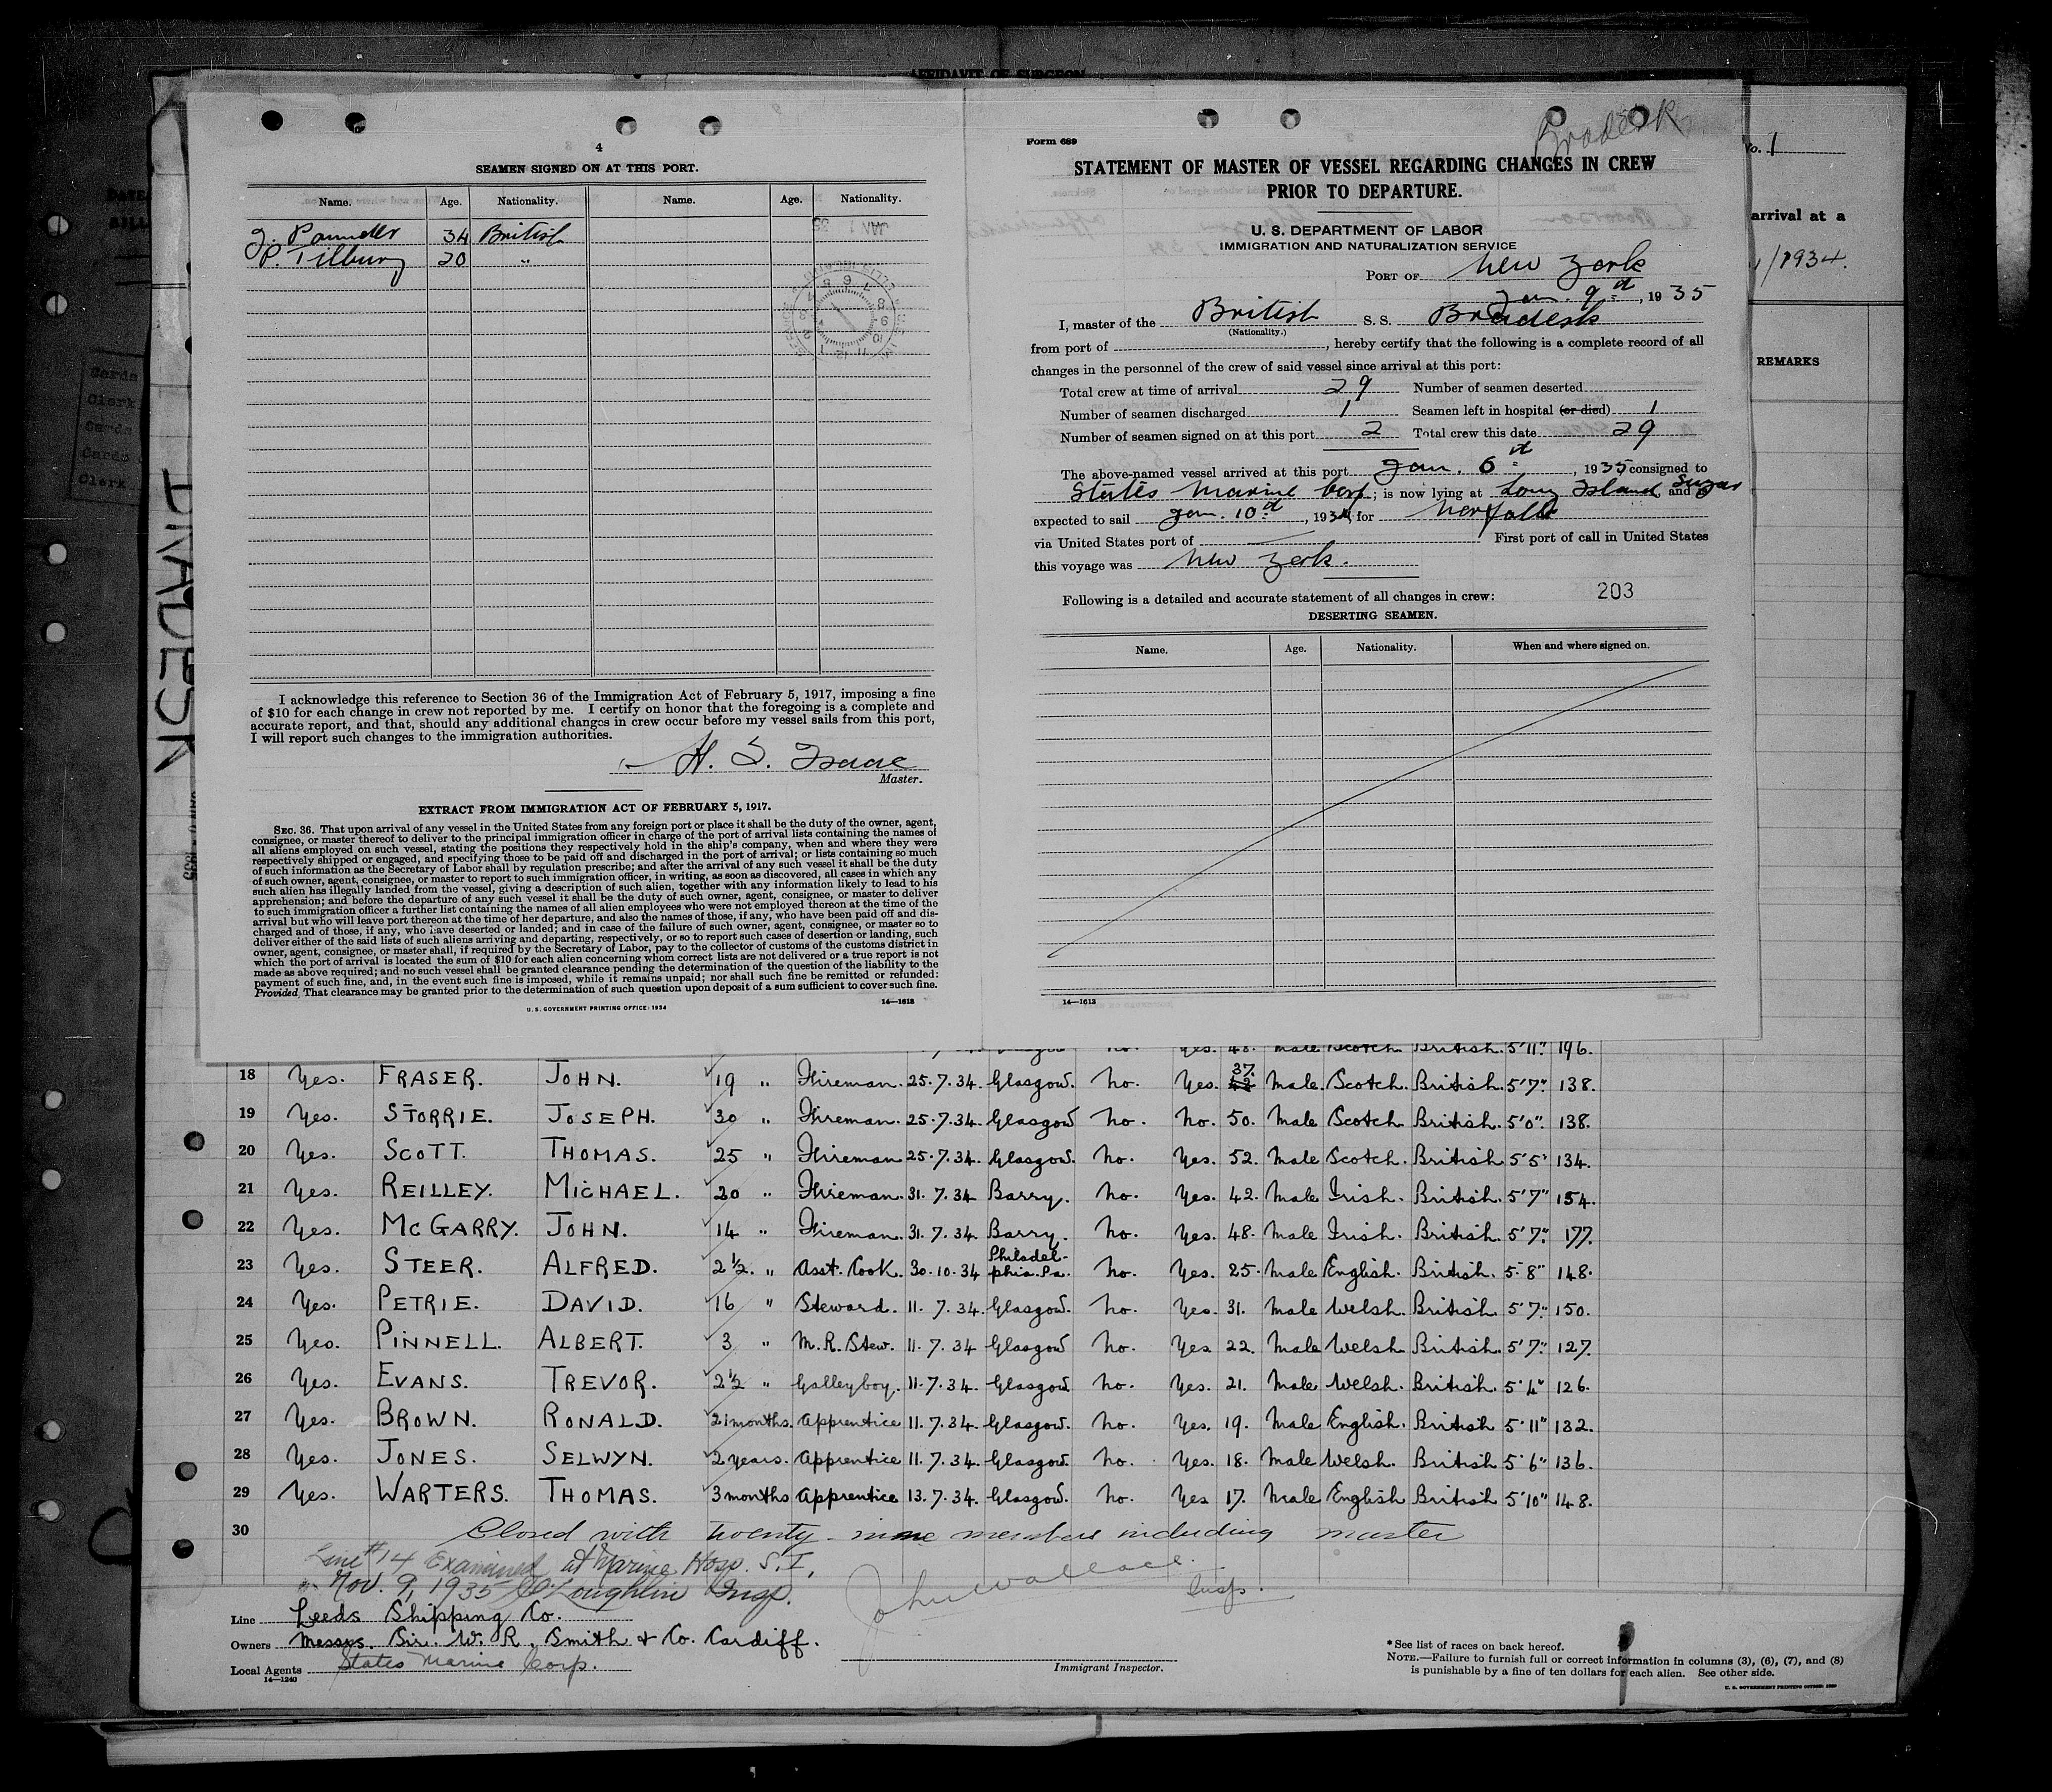 AFFIDAVIT OF SURGEON
4
SEAMEN SIGNED ON AT THIS PORT.
Name. Age. Nationality. Name. Age. Nationality.
34 British
P. Tilbury 20 "
I acknowledge this reference to Section 36 of the Immigration Act of February 5, 1917, imposing a fine
of $10 for each change in crew not reported by me. I certify on honor that the foregoing is a complete and
accurate report, and that, should any additional changes in crew occur before my vessel sails from this port,
I will report such changes to the immigration authorities.
H. S. Isaac
Master.
EXTRACT FROM IMMIGRATION ACT OF FEBRUARY 5, 1917.
SEC. 36. That upon arrival of any vessel in the United States from any foreign port or place it shall be the duty of the owner, agent,
consignee, or master thereof to deliver to the principal immigration officer in charge of the port of arrival lists containing the names of
all aliens employed on such vessel, stating the positions they respectively hold in the ship's company, when and where they were
respectively shipped or engaged, and specifying those to be paid off and discharged in the port of arrival; or lists containing so much
of such information as the Secretary of Labor shall by regulation prescribe; and after the arrival of any such vessel it shall be the duty
of such owner, agent, consignee, or master to report to such immigration officer, in writing, as soon as discovered, all cases in which any
such alien has illegally landed from the vessel, giving a description of such alien, together with any information likely to lead to his
apprehension; and before the departure of any such vessel it shall be the duty of such owner, agent, consignee, or master to deliver
to such immigration officer a further list containing the names of all alien employees who were not employed thereon at the time of the
arrival but who will leave port thereon at the time of her departure, and also the names of those, if any, who have been paid off and dis-
charged and of those, if any, who have deserted or landed; and in case of the failure of such owner, agent, consignee, or master so to
deliver either of the said lists of such aliens arriving and departing, respectively, or so to report such cases of desertion or landing, such
owner, agent, consignee, or master shall, if required by the Secretary of Labor, pay to the collector of customs of the customs district in
which the port of arrival is located the sum of $10 for each alien concerning whom correct lists are not delivered or a true report is not
made as above required; and no such vessel shall be granted clearance pending the determination of the question of the liability to the
payment of such fine, and, in the event such fine is imposed, while it remains unpaid; nor shall such fine be remitted or refunded:
Provided, That clearance may be granted prior to the determination of such question upon deposit of a sum sufficient to cover such fine.
U. S. GOVERNMENT PRINTING OFFICE: 1934 14—1613
Bradesk
Form 689
STATEMENT OF MASTER OF VESSEL REGARDING CHANGES IN CREW
PRIOR TO DEPARTURE.
U. S. DEPARTMENT OF LABOR
IMMIGRATION AND NATURALIZATION SERVICE
PORT OF New York
Jan. 9th, 1935
I, master of the British S. S. Bradesk
(Nationality.)
from port of , hereby certify that the following is a complete record of all
changes in the personnel of the crew of said vessel since arrival at this port:
Total crew at time of arrival 29 Number of seamen deserted
Number of seamen discharged 1 Seamen left in hospital (or died) 1
Number of seamen signed on at this port 2 Total crew this date 29
The above-named vessel arrived at this port Jan. 6th, 1935 consigned to
States Marine Corp; is now lying at Long Island Sugar and
expected to sail Jan. 10th, 193 for Norfolk
via United States port of First port of call in United States
this voyage was New York.
Following is a detailed and accurate statement of all changes in crew: 203
DESERTING SEAMEN.
Name. Age. Nationality. When and where signed on.
14—1613
No. 1
arrival at a
1934.
REMARKS
BRADESK
Yes. 48. Male Scotch British. 5'11" 196.
18 Yes. FRASER. JOHN. 19 " Fireman. 25.7.34. Glasgow. No. Yes. 37. Male Scotch. British. 5'7" 138.
19 Yes. STORRIE. JOSEPH. 30 " Fireman. 25.7.34. Glasgow No. No. 50. Male Scotch British. 5'0" 138.
20 Yes. SCOTT. THOMAS. 25 " Fireman 25.7.34. Glasgow. No. Yes. 52. Male Scotch. British 5'5" 134.
21 Yes. REILLEY. MICHAEL. 20 " Fireman. 31.7.34 Barry. No. Yes. 42. Male Irish. British. 5'7" 154.
22 Yes. MCGARRY. JOHN. 14 " Fireman. 31.7.34. Barry. No. Yes. 48. Male Irish. British. 5'7" 177.
23 Yes. STEER. ALFRED. 2½ " Asst. Cook. 30.10.34 Philadel-phia. Pa. No. Yes. 25. Male English. British. 5'8" 148.
24 Yes. PETRIE. DAVID. 16 " Steward. 11.7.34. Glasgow. No. Yes. 31. Male Welsh. British. 5'7" 150.
25 Yes. PINNELL. ALBERT. 3 " M.R. Stew. 11.7.34 Glasgow No. Yes 22. Male Welsh British. 5'7" 127.
26 Yes. EVANS. TREVOR. 2½ " Galleyboy. 11.7.34. Glasgow. No. Yes. 21. Male Welsh. British. 5'4" 126.
27 Yes. BROWN. RONALD. 21 months. Apprentice 11.7.34. Glasgow. No. Yes. 19. Male English. British 5'11" 132.
28 Yes. JONES. SELWYN. 2 years. Apprentice 11.7.34. Glasgow. No. Yes. 18. Male Welsh. British 5'6" 136.
29 Yes. WARTERS. THOMAS. 3 months Apprentice 13.7.34. Glasgow. No. Yes 17. Male English British 5'10" 148.
30 Closed with twenty-nine members including master
Line #14 Examined at Marine Hosp. S.I.,
Nov. 9, 1935 Loughlin Insp.
John Wallace Insp.
Line Leeds Shipping Co.
Owners Messrs. Sir. W. R. Smith & Co. Cardiff.
Local Agents States Marine Corp.
14—1240
Immigrant Inspector.
* See list of races on back hereof.
NOTE.—Failure to furnish full or correct information in columns (3), (6), (7), and (8)
is punishable by a fine of ten dollars for each alien. See other side.